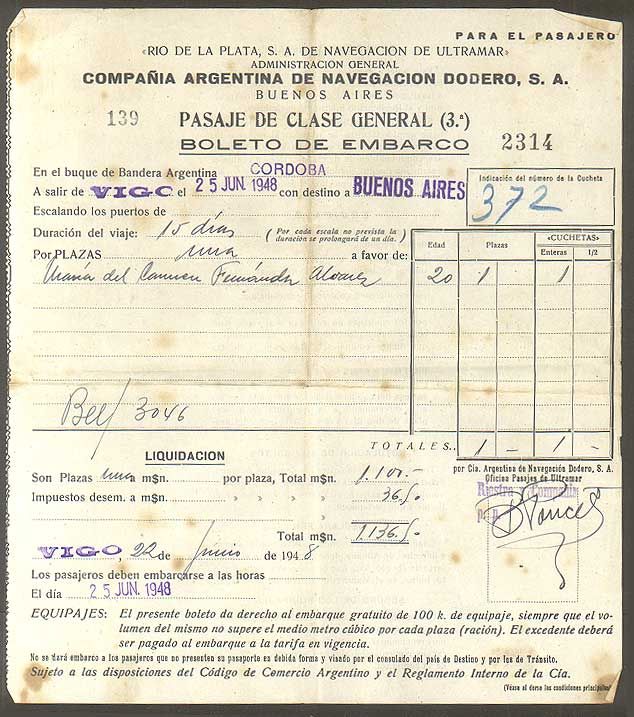 PARA EL PASAJERO
«RIO DE LA PLATA, S. A. DE NAVEGACION DE ULTRAMAR»
ADMINISTRACION GENERAL
COMPAÑIA ARGENTINA DE NAVEGACION DODERO, S. A.
BUENOS AIRES
139 PASAJE DE CLASE GENERAL (3.ª)
BOLETO DE EMBARCO 2314
En el buque de Bandera Argentina CORDOBA
A salir de VIGO el 25 JUN. 1948 con destino a BUENOS AIRES
Indicación del número de la Cucheta
372
Escalando los puertos de
Duración del viaje: 15 días (Por cada escala no prevista la duración se prolongará de un día.)
Por PLAZAS una a favor de:
Edad Plazas «CUCHETAS»
Enteras 1/2
María del Carmen Fernández Alvarez 20 1 - 1
3046
TOTALES.. 1 - 1 -
LIQUIDACION
por Cía. Argentina de Navegación Dodero, S. A.
Oficina Pasajes de Ultramar
Son Plazas una m$n. por plaza, Total m$n. 1.100.-
Impuestos desem. a m$n. » » » 36.50
Total m$n. 1.136.50
VIGO, 22 de junio de 1948
Los pasajeros deben embarcarse a las horas
El día 25 JUN. 1948
EQUIPAJES: El presente boleto da derecho al embarque gratuito de 100 k. de equipaje, siempre que el vo-
lumen del mismo no supere el medio metro cúbico por cada plaza (ración). El excedente deberá
ser pagado al embarque a la tarifa en vigencia.
No se dará embarco a los pasajeros que no presenten su pasaporte en debida forma y visado por el consulado del país de Destino y por los de Tránsito.
Sujeto a las disposiciones del Código de Comercio Argentino y el Reglamento Interno de la Cía.
(Véase al dorso las condiciones principales)